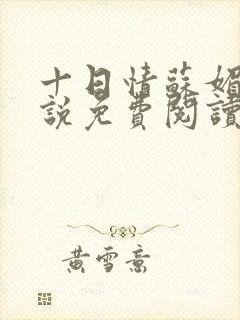 十日情蘇媚
說免費閱讀
黃雪意